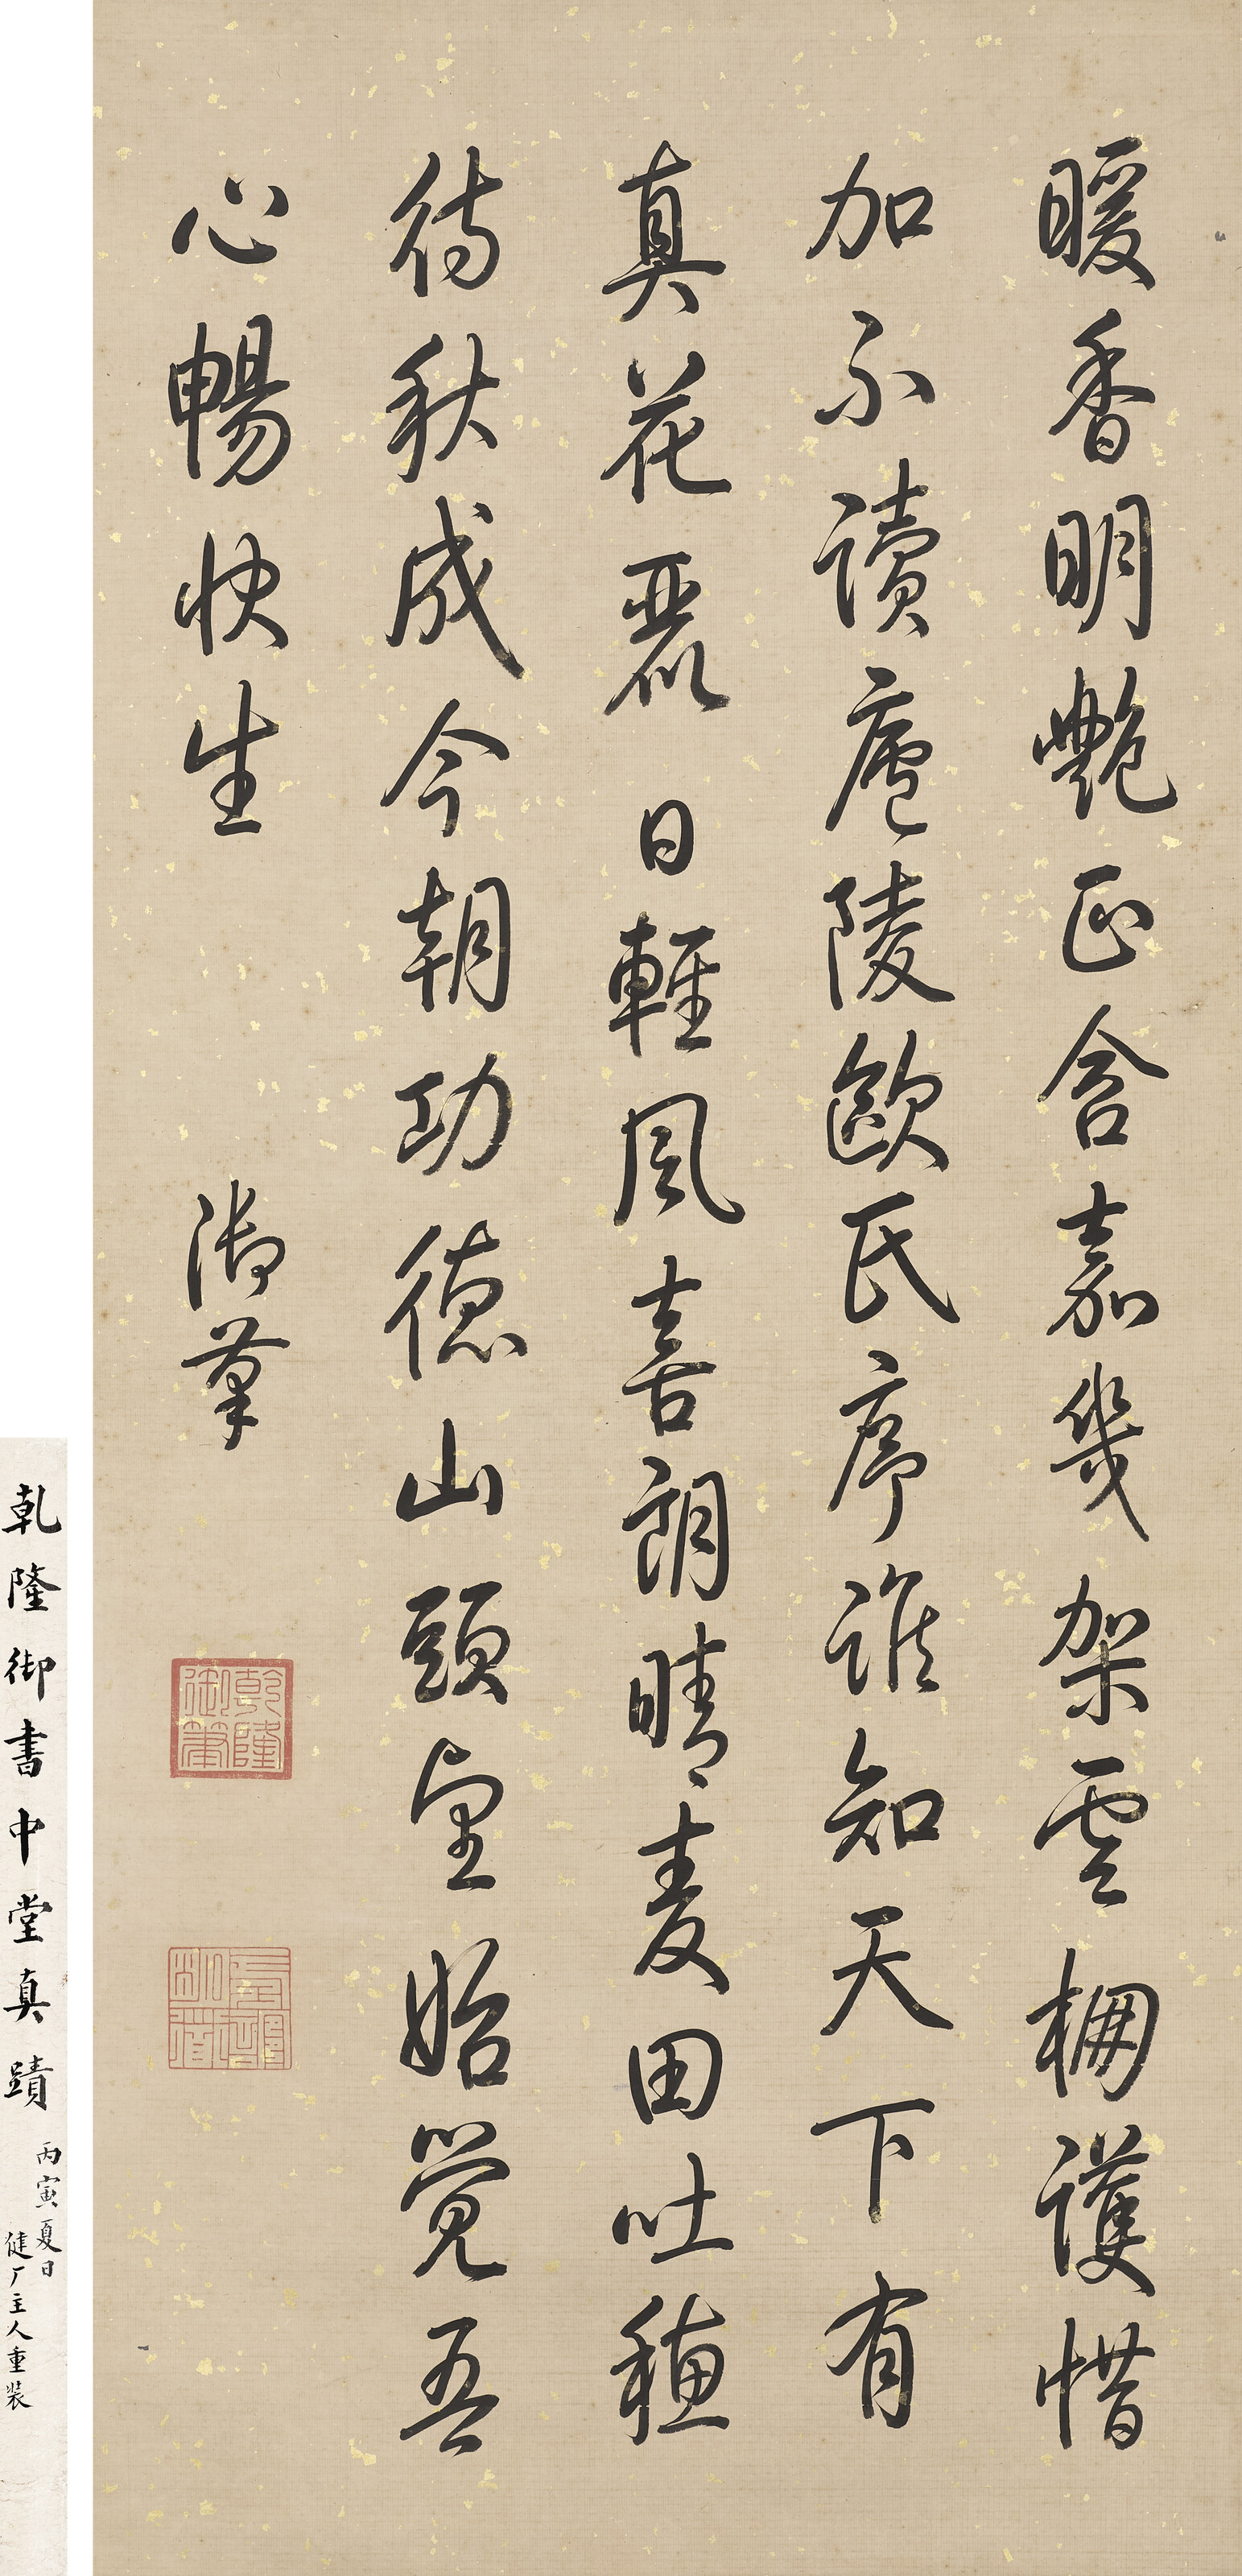 暖香明艷正含嘉幾架雲棚護惜
加不讀廬陵歐氏序誰知天下有
真花麗日輕風喜朗晴麦田吐穗
待秋成今朝功德山頭望始覺吾
心暢快生
御筆
乾隆御筆
乾隆御書中堂真蹟
丙寅夏日
健厂主人重装